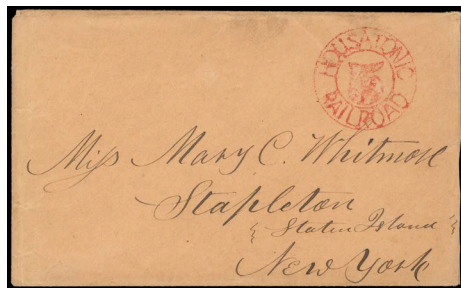 HOUSATONIC
RAILROAD
Miss Mary C. Whitmore
Stapleton
"Staten Island"
New York